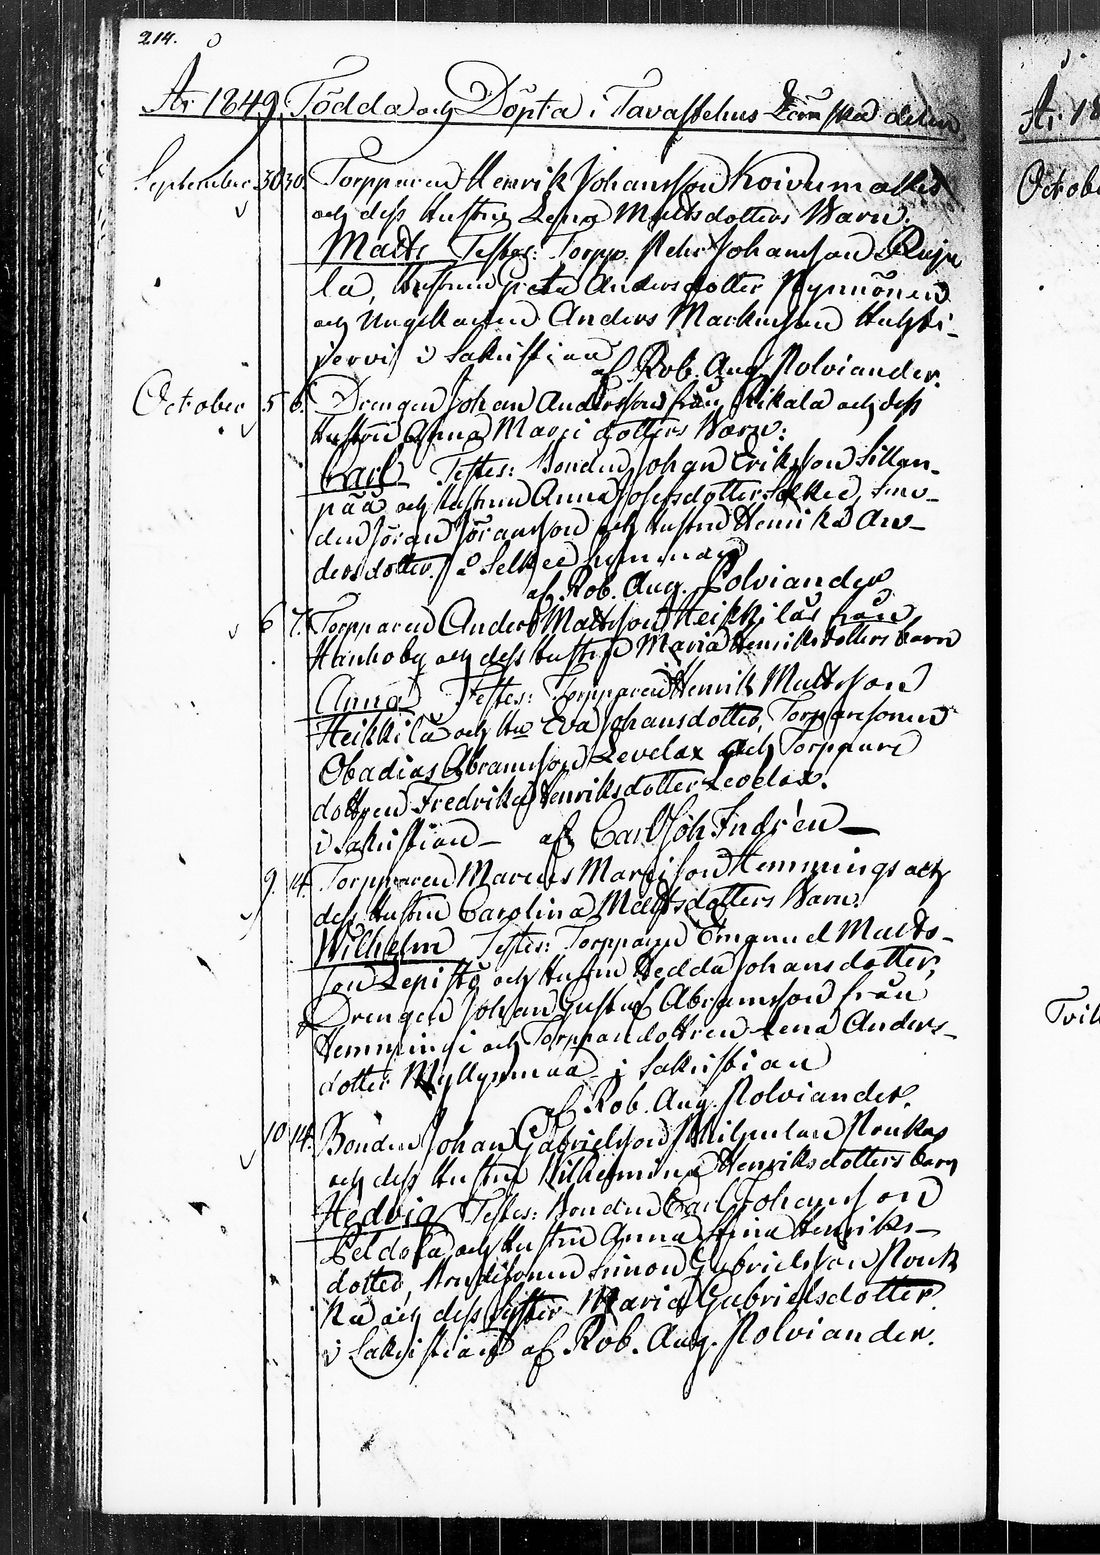 214.
År 1849. Födda och Döpta i Tavastehus Länska delen
September 30 30. Torpparen Henrik Johansson Koivumattis
och dess Hustru Lena Mattsdotters Barn.
Matts Testes: Torpp. Pehr Johansson Ruju
la, Hustrun Greta Andersdotter Nynnönen
och Ungkarlen Anders Markusson
jervi i Sakristian
af Rob. Aug. Polviander.
October 5 6. Drengen Johan Andersson från Pikala och dess
Hustru Anna Marci dotters Barn:
Carl Testes: Bonden Johan Eriksson Sillan-
pää och hustrun Anna Josefsdotter Selkee,
den Jöran Jöransson och hustru Henrika An-
dersdotter. å Selkee hemman
af Rob. Aug. Polviander
6 7. Torpparen Anders Mattsson Heikkiläs från
och dess hustru Maria Henriksdotters barn
Anna Testes: Torpparen Henrik Mattsson
Heikkilä och Hu Eva Johansdotter, Torparesonen
Obadias Abramsson Levelax och Torppare
dottren Fredrika Henriksdotter Levelax.
i Sakristian – af Carl Joh Indrén —
9. 14. Torpparen Marcus Marcisson Hemmings och
dess Hustru Carolina Mattsdotters Barn.
Wilhelm Testes: Torpparen Emanuel Matts-
son Lepistö och Hustru Hedda Johansdotter,
Drengen Johan Gustaf Abramsson från
Hemmingi och Torppardottren Lena Anders-
dotter Myllynmaa i Sakristian
af Rob. Aug. Polviander.
10 14. Bonden Johan Gabrielsson Noukas
och dess Hustru Wilhelmina Henriksdotters barn
Hedvig Testes: Bonden Carl Johansson
Peldola och Hustru Anna Stina Henriks-
dotter, Bondesonen Simon Gabrielsson Nouk
ka och dess Syster Maria Gabrielsdotter.
i Sakristian af Rob. Aug. Polviander.
År 18
Octob
Tvill